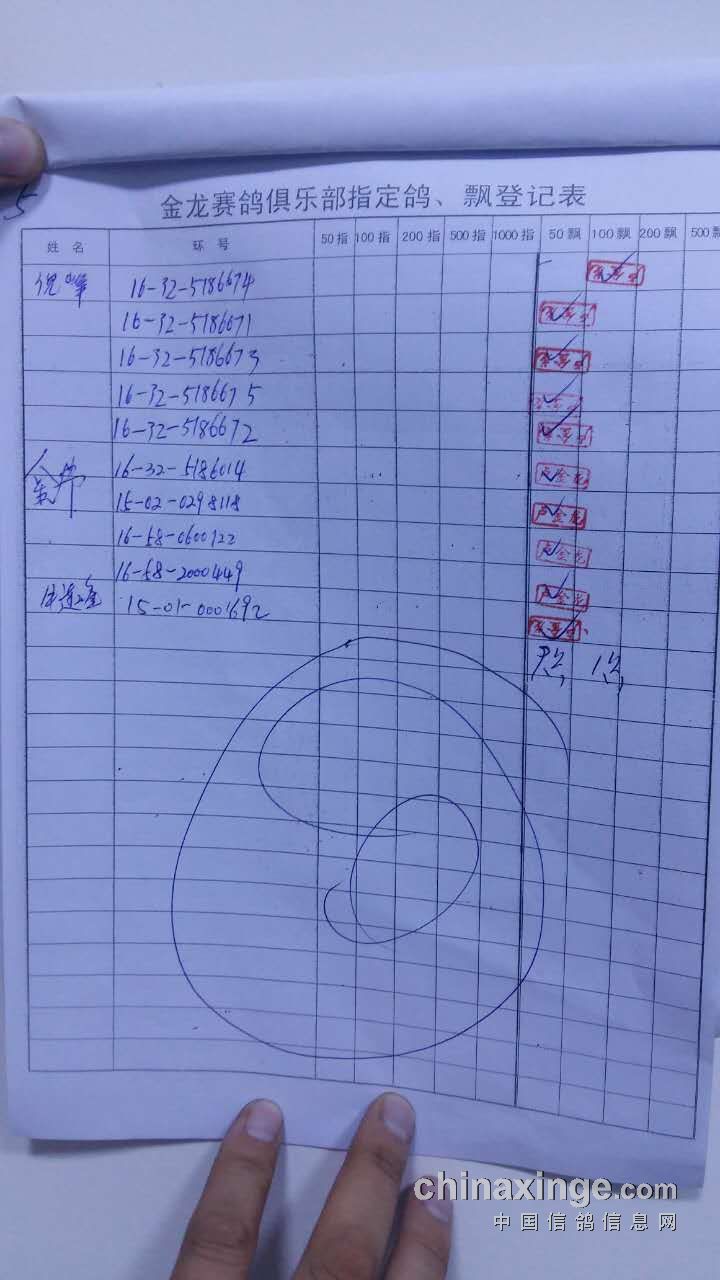 5
金龙赛鸽俱乐部指定鸽、飘登记表
姓 名 环 号 50 指 100 指 200 指 500 指 1000 指 50 飘 100 飘 200 飘 500 飘
倪峰 16-32-5186674
16-32-5186671
16-32-5186673
16-32-5186675
16-32-5186672
16-32-5186014 卢金龙
15-02-0298118 卢金龙
16-58-0600722 卢金龙
16-58-2000449 卢金龙
15-01-0001692
chinaxinge.com
中国信鸽信息网